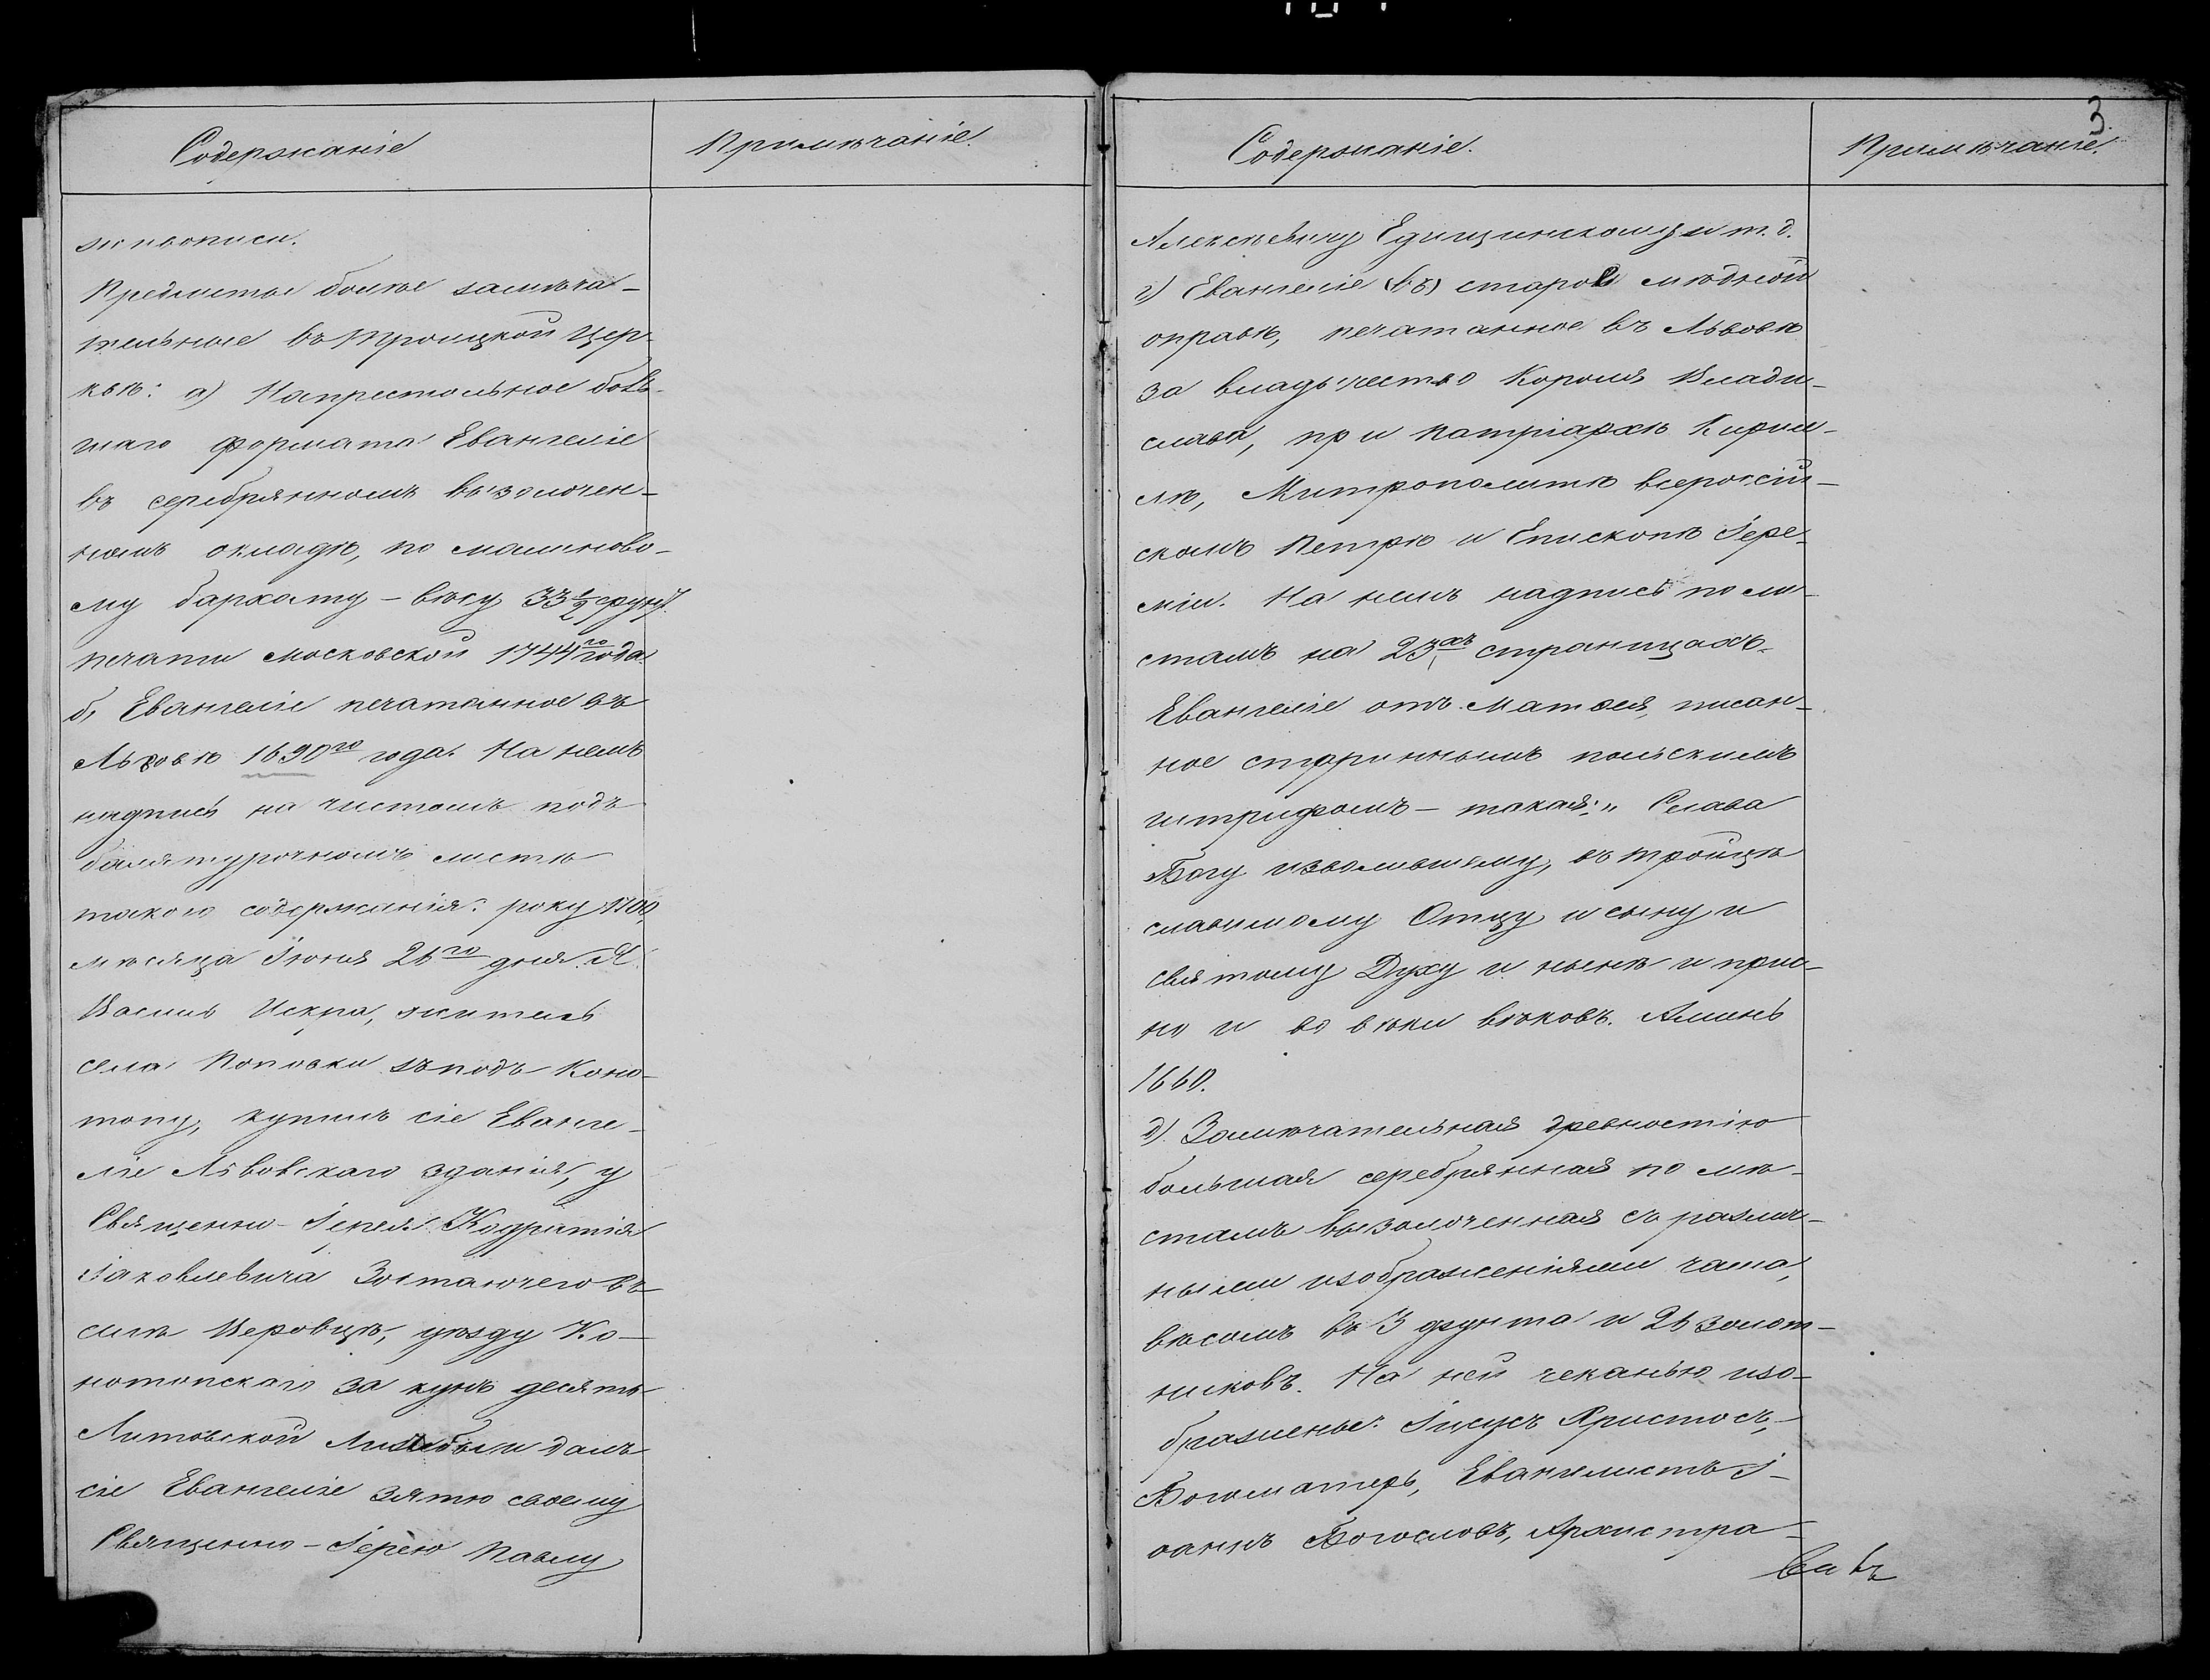 Содержаніе
Примѣчаніе.
живописи.
Предметы болѣе замѣча-
тельные въ Троицкой Цер-
квѣ: а) Напрестольное боль-
шаго формата Евангеліе
въ серебрянномъ вызолочен-
номъ окладѣ, по малиново-
му бархату – вѣсу 33 1/2 фунт.
печати московской 1744го года.
б, Евангеліе печатанное въ
Львовѣ 1690го года. На немъ
надпись на чистомъ подъ
палятурочномъ листѣ
такого содержанія: року 1700,
мѣсяца Іюня 26го дня. Я
Василь Искра, житель
села Поповки зъподъ Коно-
топу, купилъ сіе Еванге-
ліе Львовскаго зданія, у
Священно-Іерея Кодратія
Іаковлевича Зостаючего въ
силѣ Веровцѣ, уѣзду Ко-
нотопскаго за купъ десять
Литовской и далъ
сіе Евангеліе зятю своему
Священно-Іерею Павлу
3
Содержаніе.
Примѣчаніе.
Алексѣевичу и т. д.
г) Евангеліе (въ) старой мѣдной
оправѣ, печатанное въ Львовѣ
за владычество Короля Влади-
слава, при патріархѣ Кирил-
лѣ, Митрополитѣ всероссій-
скомъ Петрѣ и Епископѣ Іере-
міи. На немъ надпись по ли-
стамъ на 23хъ страницахъ
Евангеліе отъ Матѳея, писан-
ное стариннымъ польскимъ
штрифомъ – такая: „ Слава
Богу изволившему, въ троицѣ
славимому Отцу и сыну и
святому Духу и нынѣ и прис-
но и во вѣки вѣковъ. Аминь
1660.
д). Замѣчательная древностію
большая серебрянная по мѣ-
стамъ вызолоченная съ различ-
ными изображеніями чаша,
вѣсомъ въ 3 фунта и 26 золот-
никовъ. На ней чеканью изо-
браженые: Іисусъ Христосъ,
Богоматерь, Евангелистъ І-
оаннъ Богословъ, Архистра-